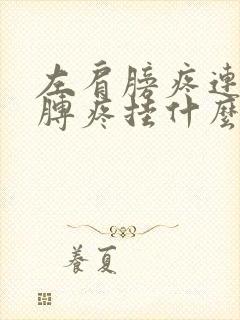 左肩膀疼连
膊疼挂什麼
养夏